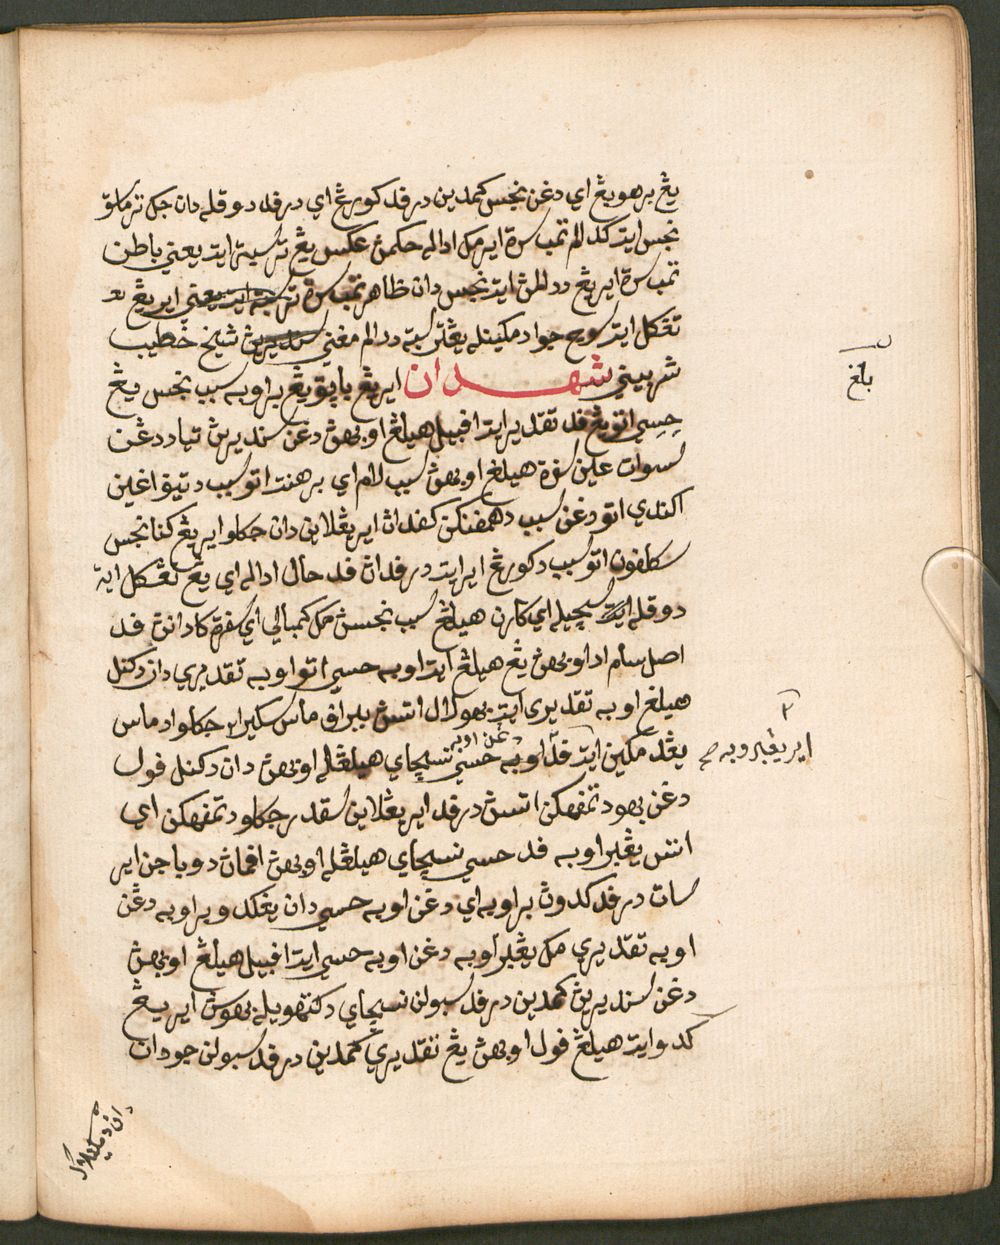 يڠ برهوبڠ اي دغن نجس كمدين درفد كورڠ اي درفد دو قله دان جك ترماسق
نجس ايت كدالم تمب سرة اير مك اداله حكمن عكس يڠ ترسبت ايت يعني باطن
تمب سرة اير يڠ ددالمن ايت نجس دان ظاهر تمب سرة ترسبت ايت يعني اير يڠ
تڠكل ايت سوچ جوا دمكينله يڠترسبة ددالم مغني شيخ خطيب
شربيني شهدان اير يڠ باپق يڠ براوبه سبب نجس يڠ
حسي اتو يڠ فد تقدير ايت افبيل هيلڠ اوبهن دغن سنديرين تياد دغن
سوات عين سفرة هيلڠ اوبهن سبب لام اي برهنت اتو سبب دتيوف اغين
اكندي اتو دغن سبب دهمفنكن كفدان اير يڠلاين دان جكلو اير يڠ كنا نجس
سكلفون اتو سبب دكورڠ اير ايت درفدان فد حال اداله اي يڠ تڠكل ايت
دو قله ايت سچيله اي كارن هيلڠ سبب نجسن مك كمبالي اي سفرت كادانن فد
اصل سام اد اوبهن يڠ هيلڠ ايت اوبه حسي اتو اوبه تقديري دان دكنل
هيلڠ اوبه تقديري ايت بهو لالو اتسن ببراف ماس سكيرا جكلو اد ماس
يڠدمكين ايت فد اوبه دغن اوبه حسي نسچاي هيلڠله اوبهن دان دكنل فول
دغن بهو دتمفهكن اتسن درفد اير يڠلاين سقدر جكلو دتمفهكن اي
اتس يڠبراوبه فد حسي نسچاي هيلڠله اوبهن افمان دو باجن اير
سات درفد كدون براوبه اي دغن اوبه حسي دان يڠكدو براوبه دغن
اوبه تقديري مك يڠبراوبه دغن اوبه حسي ايت افبيل هيلڠ اوبهن
دغن سنديرين كمدين درفد سبولن نسچاي دكتهويله بهوسن اير يڠ
كدو ايت هيلڠ فول اوبهن يڠ تقديري كمدين درفد سبولن جو دان
بلغ
اير يڠبروبه صح